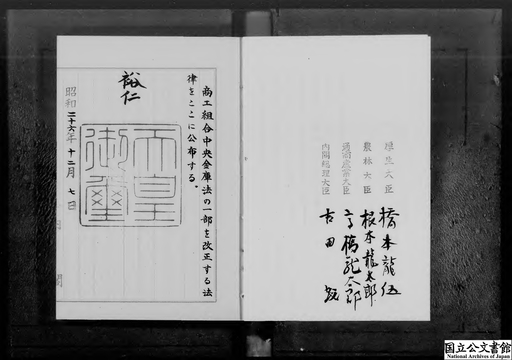 商工組合中央金庫法の一部を改正する法
律をここに公布する。
裕仁
天皇
御璽
昭和二十六年十二月七日
内閣
厚生大臣 橋本龍伍
農林大臣 根本龍太郎
通商産業大臣 高橋龍太郎
内閣総理大臣 吉田茂
国立公文書館
National Archives of Japan